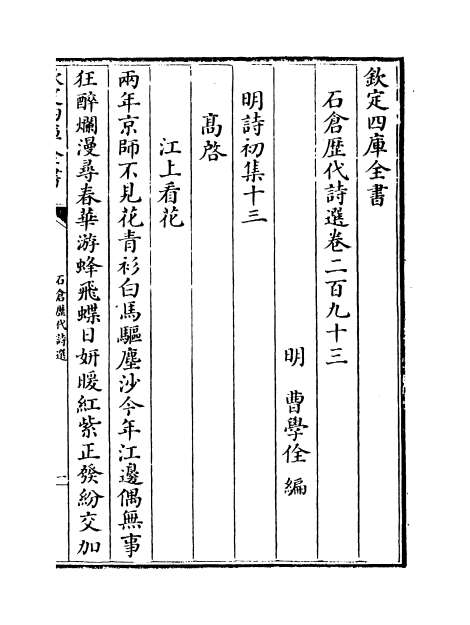 欽定四庫全書
石倉歴代詩選卷二百九十三
明 曹學佺 編
明詩初集十三
髙啓
江上看花
兩年京師不見花青衫白馬驅塵沙今年江邊偶無事
狂醉爛漫尋春華游蜂飛蝶日妍暖紅紫正發紛交加
石倉歴代詩選